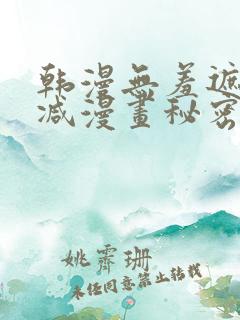 韩漫無羞遮
减漫畫秘密
姚霽珊
未经同意禁止转载